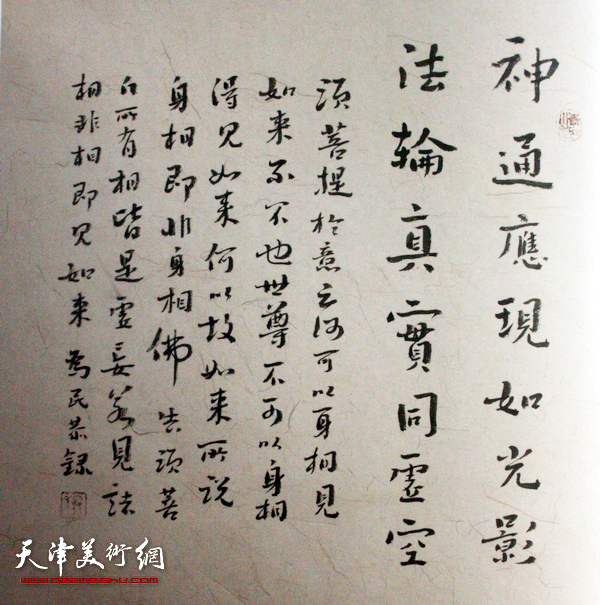 神通應現如光影
法輪真實同虛空
須菩提於意云何可以身相見
如来不不也世尊不可以身相
得見如来何以故如来所說
身相即非身相佛告須菩
凡所有相皆是虛妄若見諸
相非相即見如来 為民恭錄
天津美術網
www.022meishu.com